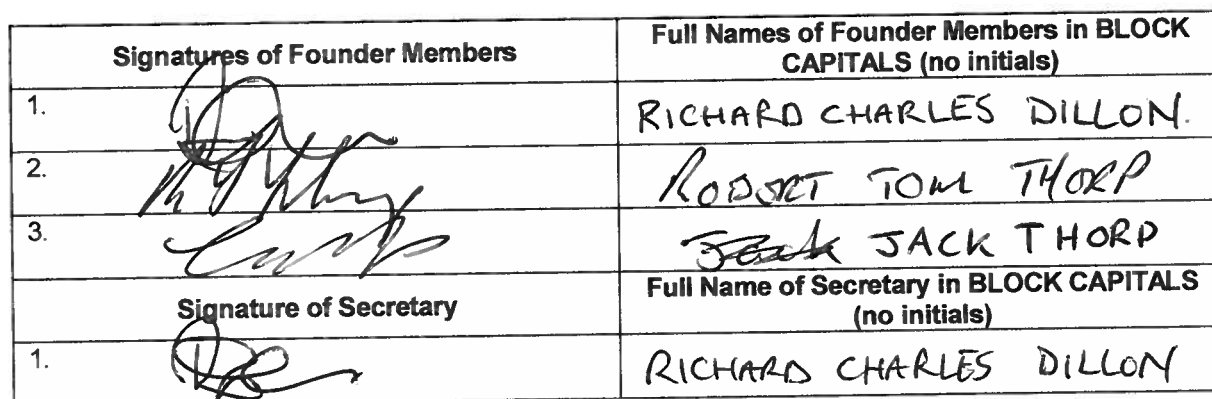 Signatures of Founder Members
Full Names of Founder Members in BLOCK
CAPITALS (no initials)
1.
RICHARD CHARLES DILLON.
2.
ROBERT TOM THORP
3.
JACK THORP
Signature of Secretary
Full Name of Secretary in BLOCK CAPITALS
(no initials)
1.
RICHARD CHARLES DILLON